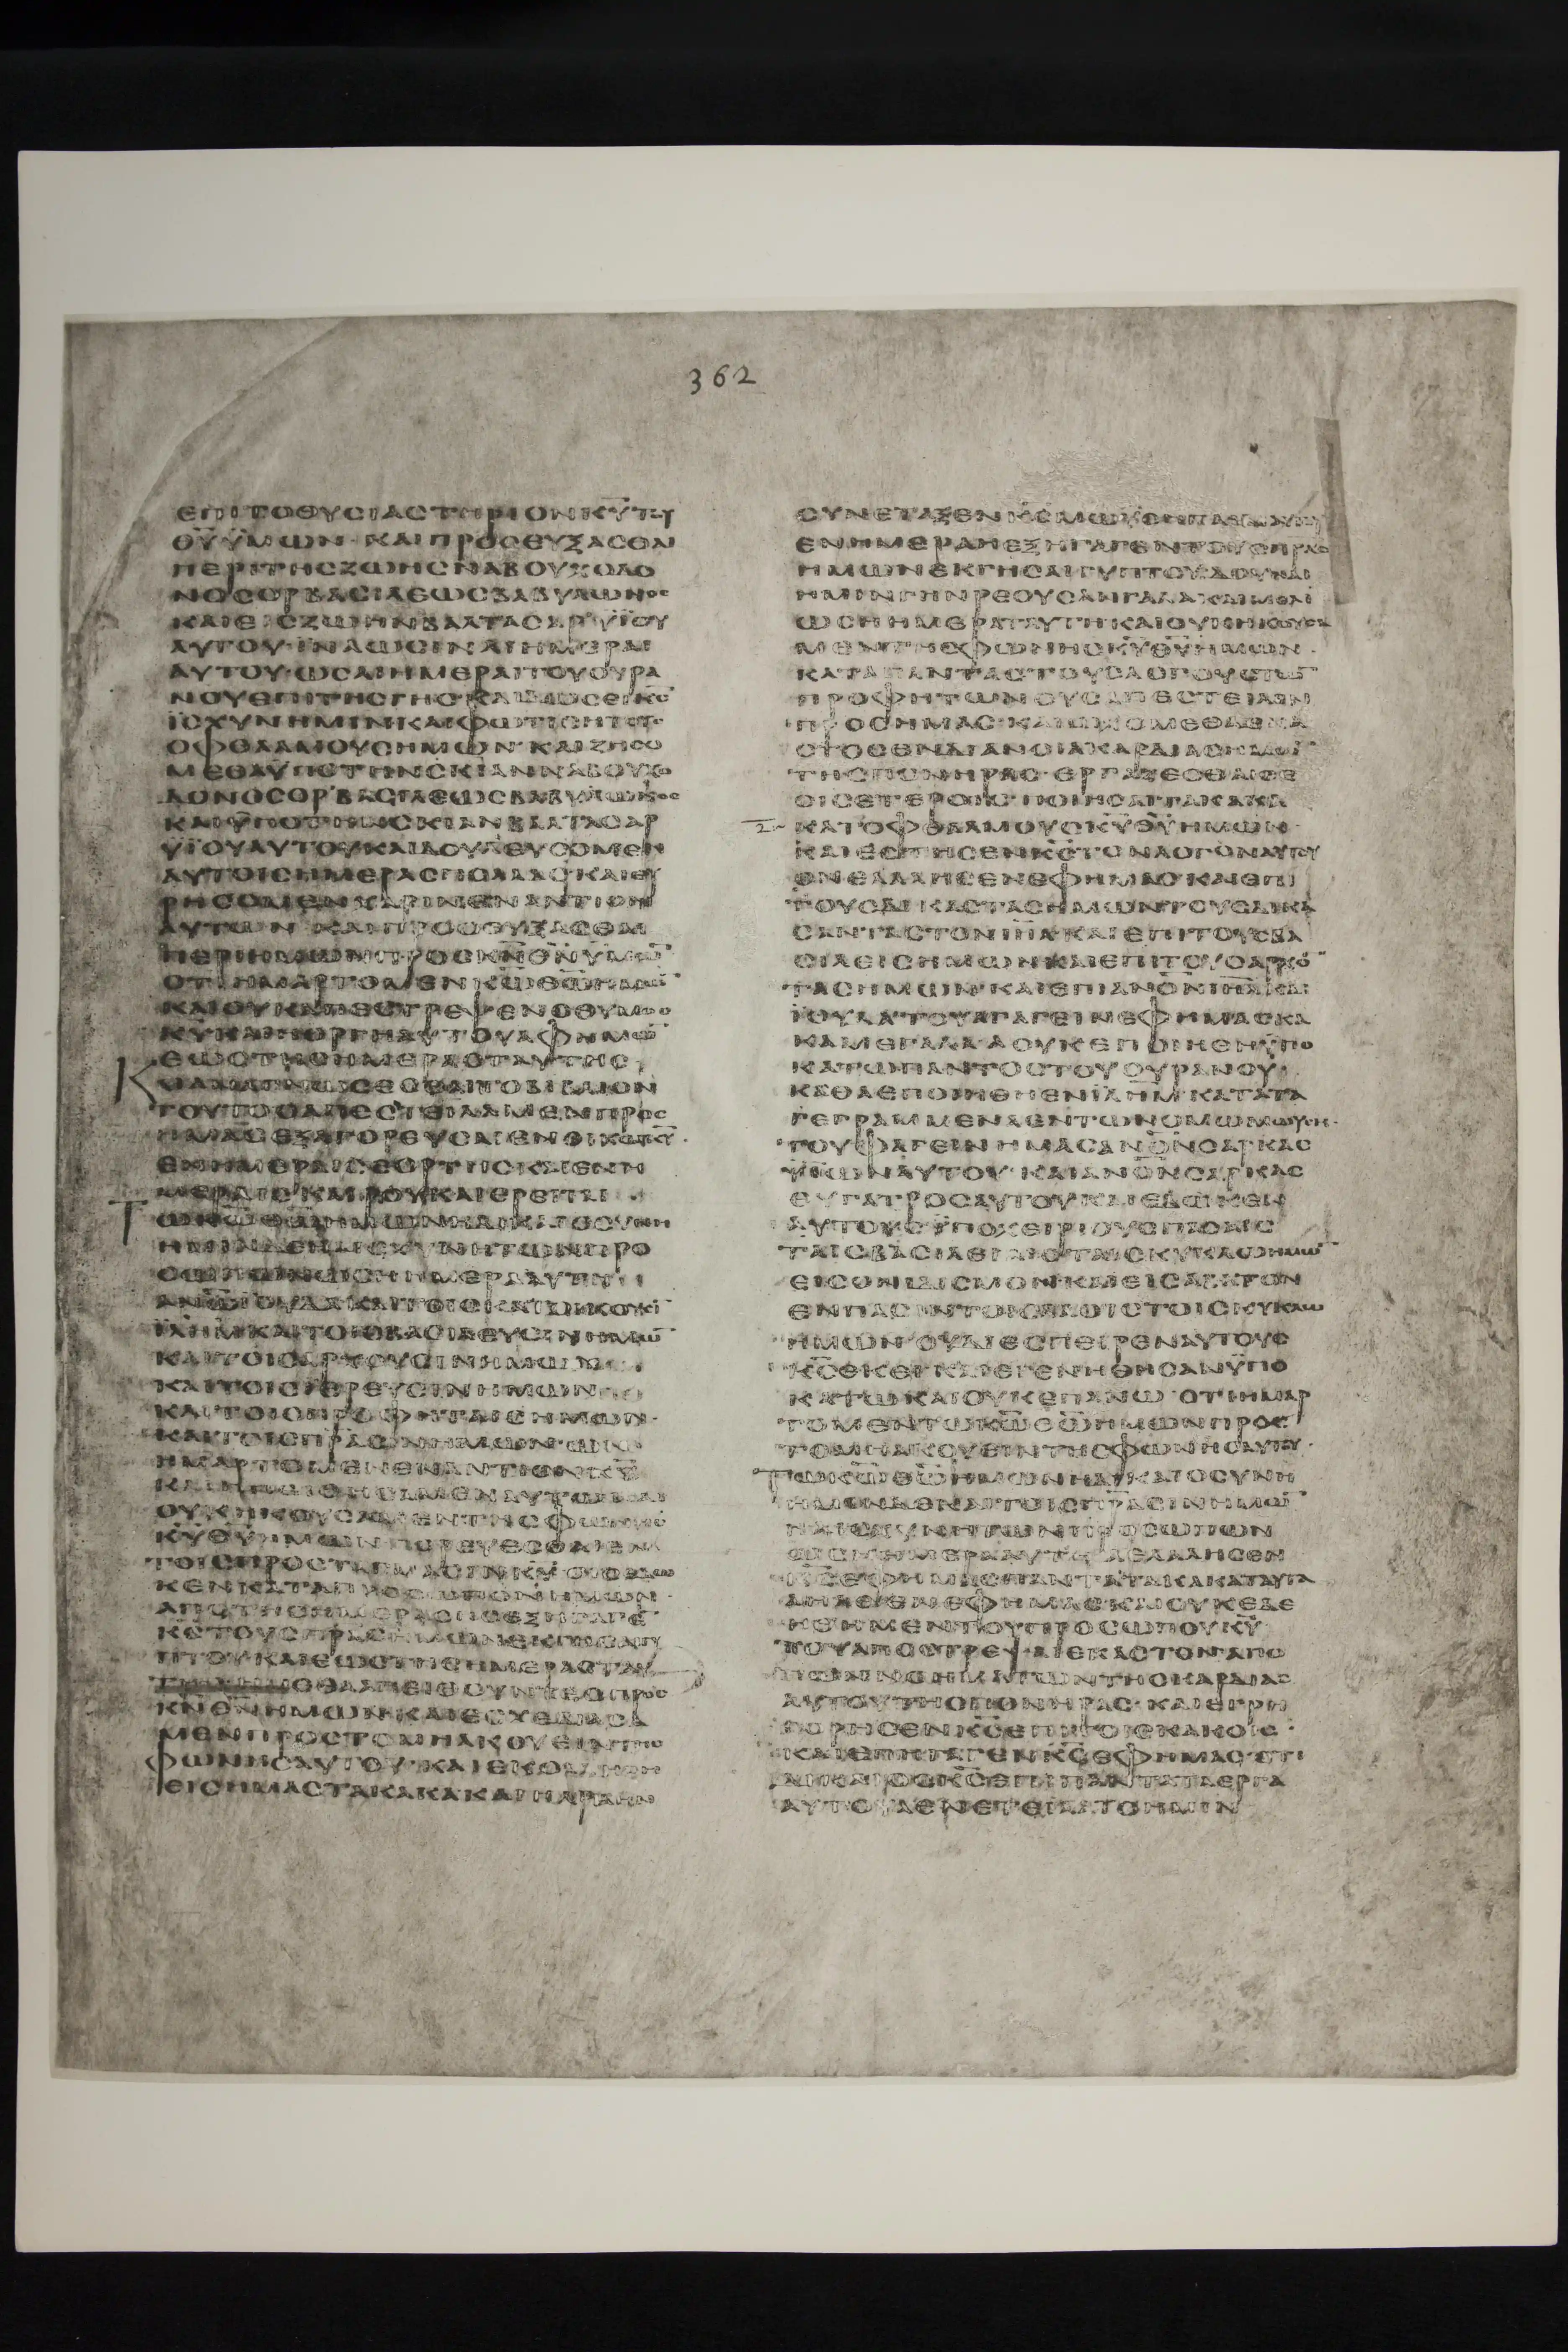 362
ΕΠΙΤΟΘΥΣΙΑΣΤΗΡΙΟΝΚΥΤΟΥ
ΘΥΫΜΩΝ·ΚΑΙΠΡΟΣΕΥΞΑΣΘΑΙ
ΠΕΡΙΤΗΣΖΩΗΣΝΑΒΟΥΧΟΔΟ
ΝΟΣΟΡΒΑΣΙΛΕΩΣΒΑΒΥΛΩΝΟΣ
ΚΑΙΕΙΣΖΩΗΝΒΑΛΤΑΣΑΡΥΪΟΥ
ΑΥΤΟΥ·ΙΝΑΩΣΙΝΑΙΗΜΕΡΑΙ
ΑΥΤΟΥ·ΩΣΑΙΗΜΕΡΑΙΤΟΥΟΥΡΑ
ΝΟΥΕΠΙΤΗΣΓΗΣ·ΚΑΙΔΩΣΕΙΚΣ
ΪΣΧΥΝΗΜΙΝΚΑΙΦΩΤΙΣΗΤΟΥΣ
ΟΦΘΑΛΜΟΥΣΗΜΩΝ·ΚΑΙΖΗΣΟ
ΜΕΘΑΫΠΟΤΗΝΣΚΙΑΝΝΑΒΟΥΧΟ
ΔΟΝΟΣΟΡΒΑΣΙΛΕΩΣΒΑΒΥΛΩΝΟΣ
ΚΑΙΫΠΟΤΗΝΣΚΙΑΝΒΑΛΤΑΣΑΡ
ΥΪΟΥΑΥΤΟΥΚΑΙΔΟΥΛΕΥΣΟΜΕΝ
ΑΥΤΟΙΣΗΜΕΡΑΣΠΟΛΛΑΣΚΑΙΕΥ
ΡΗΣΟΜΕΝΧΑΡΙΝΕΝΑΝΤΙΟΝ
ΑΥΤΩΝ·ΚΑΙΠΡΟΣΕΥΞΑΣΘΑΙ
ΠΕΡΙΗΜΩΝΠΡΟΣΚΝΘΝΫΜΩ
ΟΤΙΗΜΑΡΤΟΜΕΝΚΩΘΩΗΜΩ
ΚΑΙΟΥΚΑΠΕΣΤΡΕΨΕΝΟΘΥΜΟΣ
ΚΥΚΑΙΗΟΡΓΗΑΥΤΟΥΑΦΗΜΩ
ΕΩΣΤΗΣΗΜΕΡΑΣΤΑΥΤΗΣ
ΚΑΙΑΝΑΓΝΩΣΕΣΘΑΙΤΟΒΙΒΛΙΟΝ
ΤΟΥΤΟΟΑΠΕΣΤΕΙΛΑΜΕΝΠΡΟΣ
ΫΜΑΣΕΞΑΓΟΡΕΥΣΑΙΕΝΟΙΚΩΚΥ·
ΕΝΗΜΕΡΑΙΣΕΟΡΤΗΣΚΑΙΕΝΗ
ΜΕΡΑΙΣΚΑΙΡΟΥΚΑΙΕΡΕΙΤΑΙ
ΤΩΚΩΘΩΗΜΩΝΗΔΙΚΑΙΟΣΥΝΗ
ΗΜΙΝΔΕΗΑΙΣΧΥΝΗΤΩΝΠΡΟ
ΣΩΠΩΝΩΣΗΗΜΕΡΑΑΥΤΗ
ΑΝΩΙΟΥΔΑΚΑΙΤΟΙΣΚΑΤΟΙΚΟΥΣΙ
ΪΛΗΜΚΑΙΤΟΙΣΒΑΣΙΛΕΥΣΙΝΗΜΩ
ΚΑΙΤΟΙΣΑΡΧΟΥΣΙΝΗΜΩΝ
ΚΑΙΤΟΙΣΙΕΡΕΥΣΙΝΗΜΩΝ
ΚΑΙΤΟΙΣΠΡΟΦΗΤΑΙΣΗΜΩΝ·
ΚΑΙΤΟΙΣΠΡΑΣΙΝΗΜΩΝ·ΩΝ
ΗΜΑΡΤΟΜΕΝΕΝΑΝΤΙΟΝΚΥ
ΚΑΙΗΠΕΙΘΗΣΑΜΕΝΑΥΤΩΚΑΙ
ΟΥΚΗΚΟΥΣΑΜΕΝΤΗΣΦΩΝΗΣ
ΚΥΘΥΗΜΩΝΠΟΡΕΥΕΣΘΑΙΕΝ
ΤΟΙΣΠΡΟΣΤΑΓΜΑΣΙΝΚΥΟΙΣΕΔΩ
ΚΕΝΚΑΤΑΠΡΟΣΩΠΟΝΗΜΩΝ·
ΑΠΟΤΗΣΗΜΕΡΑΣΗΣΕΞΗΓΑΓΕ
ΚΣΤΟΥΣΠΡΑΣΗΜΩΝΕΚΓΗΣΑΙΓΥ
ΠΤΟΥΚΑΙΕΩΣΤΗΣΗΜΕΡΑΣΤΑΥ
ΤΗΣΗΜΕΘΑΑΠΕΙΘΟΥΝΤΕΣΠΡΟΣ
ΚΝΘΝΗΜΩΝ·ΚΑΙΕΣΧΕΔΙΑΣΑ
ΜΕΝΠΡΟΣΤΟΜΗΑΚΟΥΕΙΝΤΗΣ
ΦΩΝΗΣΑΥΤΟΥ·ΚΑΙΕΚΟΛΛΗΘΗ
ΕΙΣΗΜΑΣΤΑΚΑΚΑΚΑΙΗΑΡΑΗΝ
ΣΥΝΕΤΑΞΕΝΚΣΜΩΫΣΗΠΑΙΔΙΑΥΤΟΥ
ΕΝΗΜΕΡΑΗΕΞΗΓΑΓΕΝΤΟΥΣΠΡΑΣ
ΗΜΩΝΕΚΓΗΣΑΙΓΥΠΤΟΥΔΟΥΝΑΙ
ΗΜΙΝΓΗΝΡΕΟΥΣΑΝΓΑΛΑΚΑΙΜΕΛΙ
ΩΣΗΗΜΕΡΑΑΥΤΗΚΑΙΟΥΚΗΚΟΥΣΑ
ΜΕΝΤΗΣΦΩΝΗΣΚΥΘΥΗΜΩΝ·
ΚΑΤΑΠΑΝΤΑΣΤΟΥΣΛΟΓΟΥΣΤΩ
ΠΡΟΦΗΤΩΝΟΥΣΑΠΕΣΤΕΙΛΕΝ
ΠΡΟΣΗΜΑΣ·ΚΑΙΩΧΟΜΕΘΑΕΚΑ
ΣΤΟΣΕΝΔΙΑΝΟΙΑΚΑΡΔΙΑΣΗΜΩ
ΤΗΣΠΟΝΗΡΑΣ·ΕΡΓΑΖΕΣΘΑΙΘΕ
ΟΙΣΕΤΕΡΟΙΣ·ΠΟΙΗΣΑΙΤΑΚΑΚΑ
ΚΑΤΟΦΘΑΛΜΟΥΣΚΥΘΥΗΜΩΝ·
ΚΑΙΕΣΤΗΣΕΝΚΣΤΟΝΛΟΓΟΝΑΥΤΟΥ
ΟΝΕΛΑΛΗΣΕΝΕΦΗΜΑΣ·ΚΑΙΕΠΙ
ΤΟΥΣΔΙΚΑΣΤΑΣΗΜΩΝΤΟΥΣΔΙΚΑ
ΣΑΝΤΑΣΤΟΝΙΗΛΚΑΙΕΠΙΤΟΥΣΒΑ
ΣΙΛΕΙΣΗΜΩΝΚΑΙΕΠΙΤΟΥΣΑΡΧΟ
ΤΑΣΗΜΩΝ·ΚΑΙΕΠΙΑΝΟΝΙΗΛΚΑΙ
ΪΟΥΔΑΤΟΥΑΓΑΓΕΙΝΕΦΗΜΑΣΚΑ
ΚΑΜΕΓΑΛΑ·ΑΟΥΚΕΠΟΙΗΘΗΫΠΟ
ΚΑΤΩΠΑΝΤΟΣΤΟΥΟΥΡΑΝΟΥ
ΚΑΘΑΕΠΟΙΗΘΗΕΝΪΛΗΜΚΑΤΑΤΑ
ΓΕΓΡΑΜΜΕΝΑΕΝΤΩΝΟΜΩΜΩΥΣΗ·
ΤΟΥΦΑΓΕΙΝΗΜΑΣΑΝΟΝΣΑΡΚΑΣ
ΥΪΩΝΑΥΤΟΥ·ΚΑΙΑΝΟΝΣΑΡΚΑΣ
ΘΥΓΑΤΡΟΣΑΥΤΟΥΚΑΙΕΔΩΚΕΝ
ΑΥΤΟΥΣΫΠΟΧΕΙΡΙΟΥΣΠΑΣΑΙΣ
ΤΑΙΣΒΑΣΙΛΕΙΑΙΣΤΑΙΣΚΥΚΛΩΗΜΩ
ΕΙΣΟΝΙΔΙΣΜΟΝΚΑΙΕΙΣΑΒΑΤΟΝ
ΕΝΠΑΣΙΝΤΟΙΣΛΑΟΙΣΤΟΙΣΚΥΚΛΩ
ΗΜΩΝ·ΟΥΔΙΕΣΠΕΙΡΕΝΑΥΤΟΥΣ
ΚΣΕΚΕΙ·ΚΑΙΕΓΕΝΗΘΗΣΑΝΫΠΟ
ΚΑΤΩΚΑΙΟΥΚΕΠΑΝΩ·ΟΤΙΗΜΑΡ
ΤΟΜΕΝΤΩΚΩΘΩΗΜΩΝΠΡΟΣ
ΤΟΜΗΑΚΟΥΕΙΝΤΗΣΦΩΝΗΣΑΥΤΟΥ·
ΤΩΚΩΘΩΗΜΩΝΗΔΙΚΑΙΟΣΥΝΗ
ΗΜΙΝΔΕΚΑΙΤΟΙΣΠΡΑΣΙΝΗΜΩ
ΗΑΙΣΧΥΝΗΤΩΝΠΡΟΣΩΠΩΝ
ΩΣΗΗΜΕΡΑΑΥΤΗ·ΑΕΛΑΛΗΣΕΝ
ΚΣΕΦΗΜΑΣΠΑΝΤΑΤΑΚΑΚΑΤΑΥΤΑ
ΑΗΛΘΕΝΕΦΗΜΑΣ·ΚΑΙΟΥΚΕΔΕ
ΗΘΗΜΕΝΤΟΥΠΡΟΣΩΠΟΥΚΥ
ΤΟΥΑΠΟΣΤΡΕΨΑΙΕΚΑΣΤΟΝΑΠΟ
ΤΩΝΝΟΗΜΑΤΩΝΤΗΣΚΑΡΔΙΑΣ
ΑΥΤΟΥΤΗΣΠΟΝΗΡΑΣ·ΚΑΙΕΓΡΗ
ΓΟΡΗΣΕΝΚΣΕΠΙΤΟΙΣΚΑΚΟΙΣ·
ΚΑΙΕΠΗΓΑΓΕΝΚΣΕΦΗΜΑΣ·ΟΤΙ
ΔΙΚΑΙΟΣΚΣΕΠΙΠΑΝΤΑΤΑΕΡΓΑ
ΑΥΤΟΥΑΕΝΕΤΕΙΛΑΤΟΗΜΙΝ